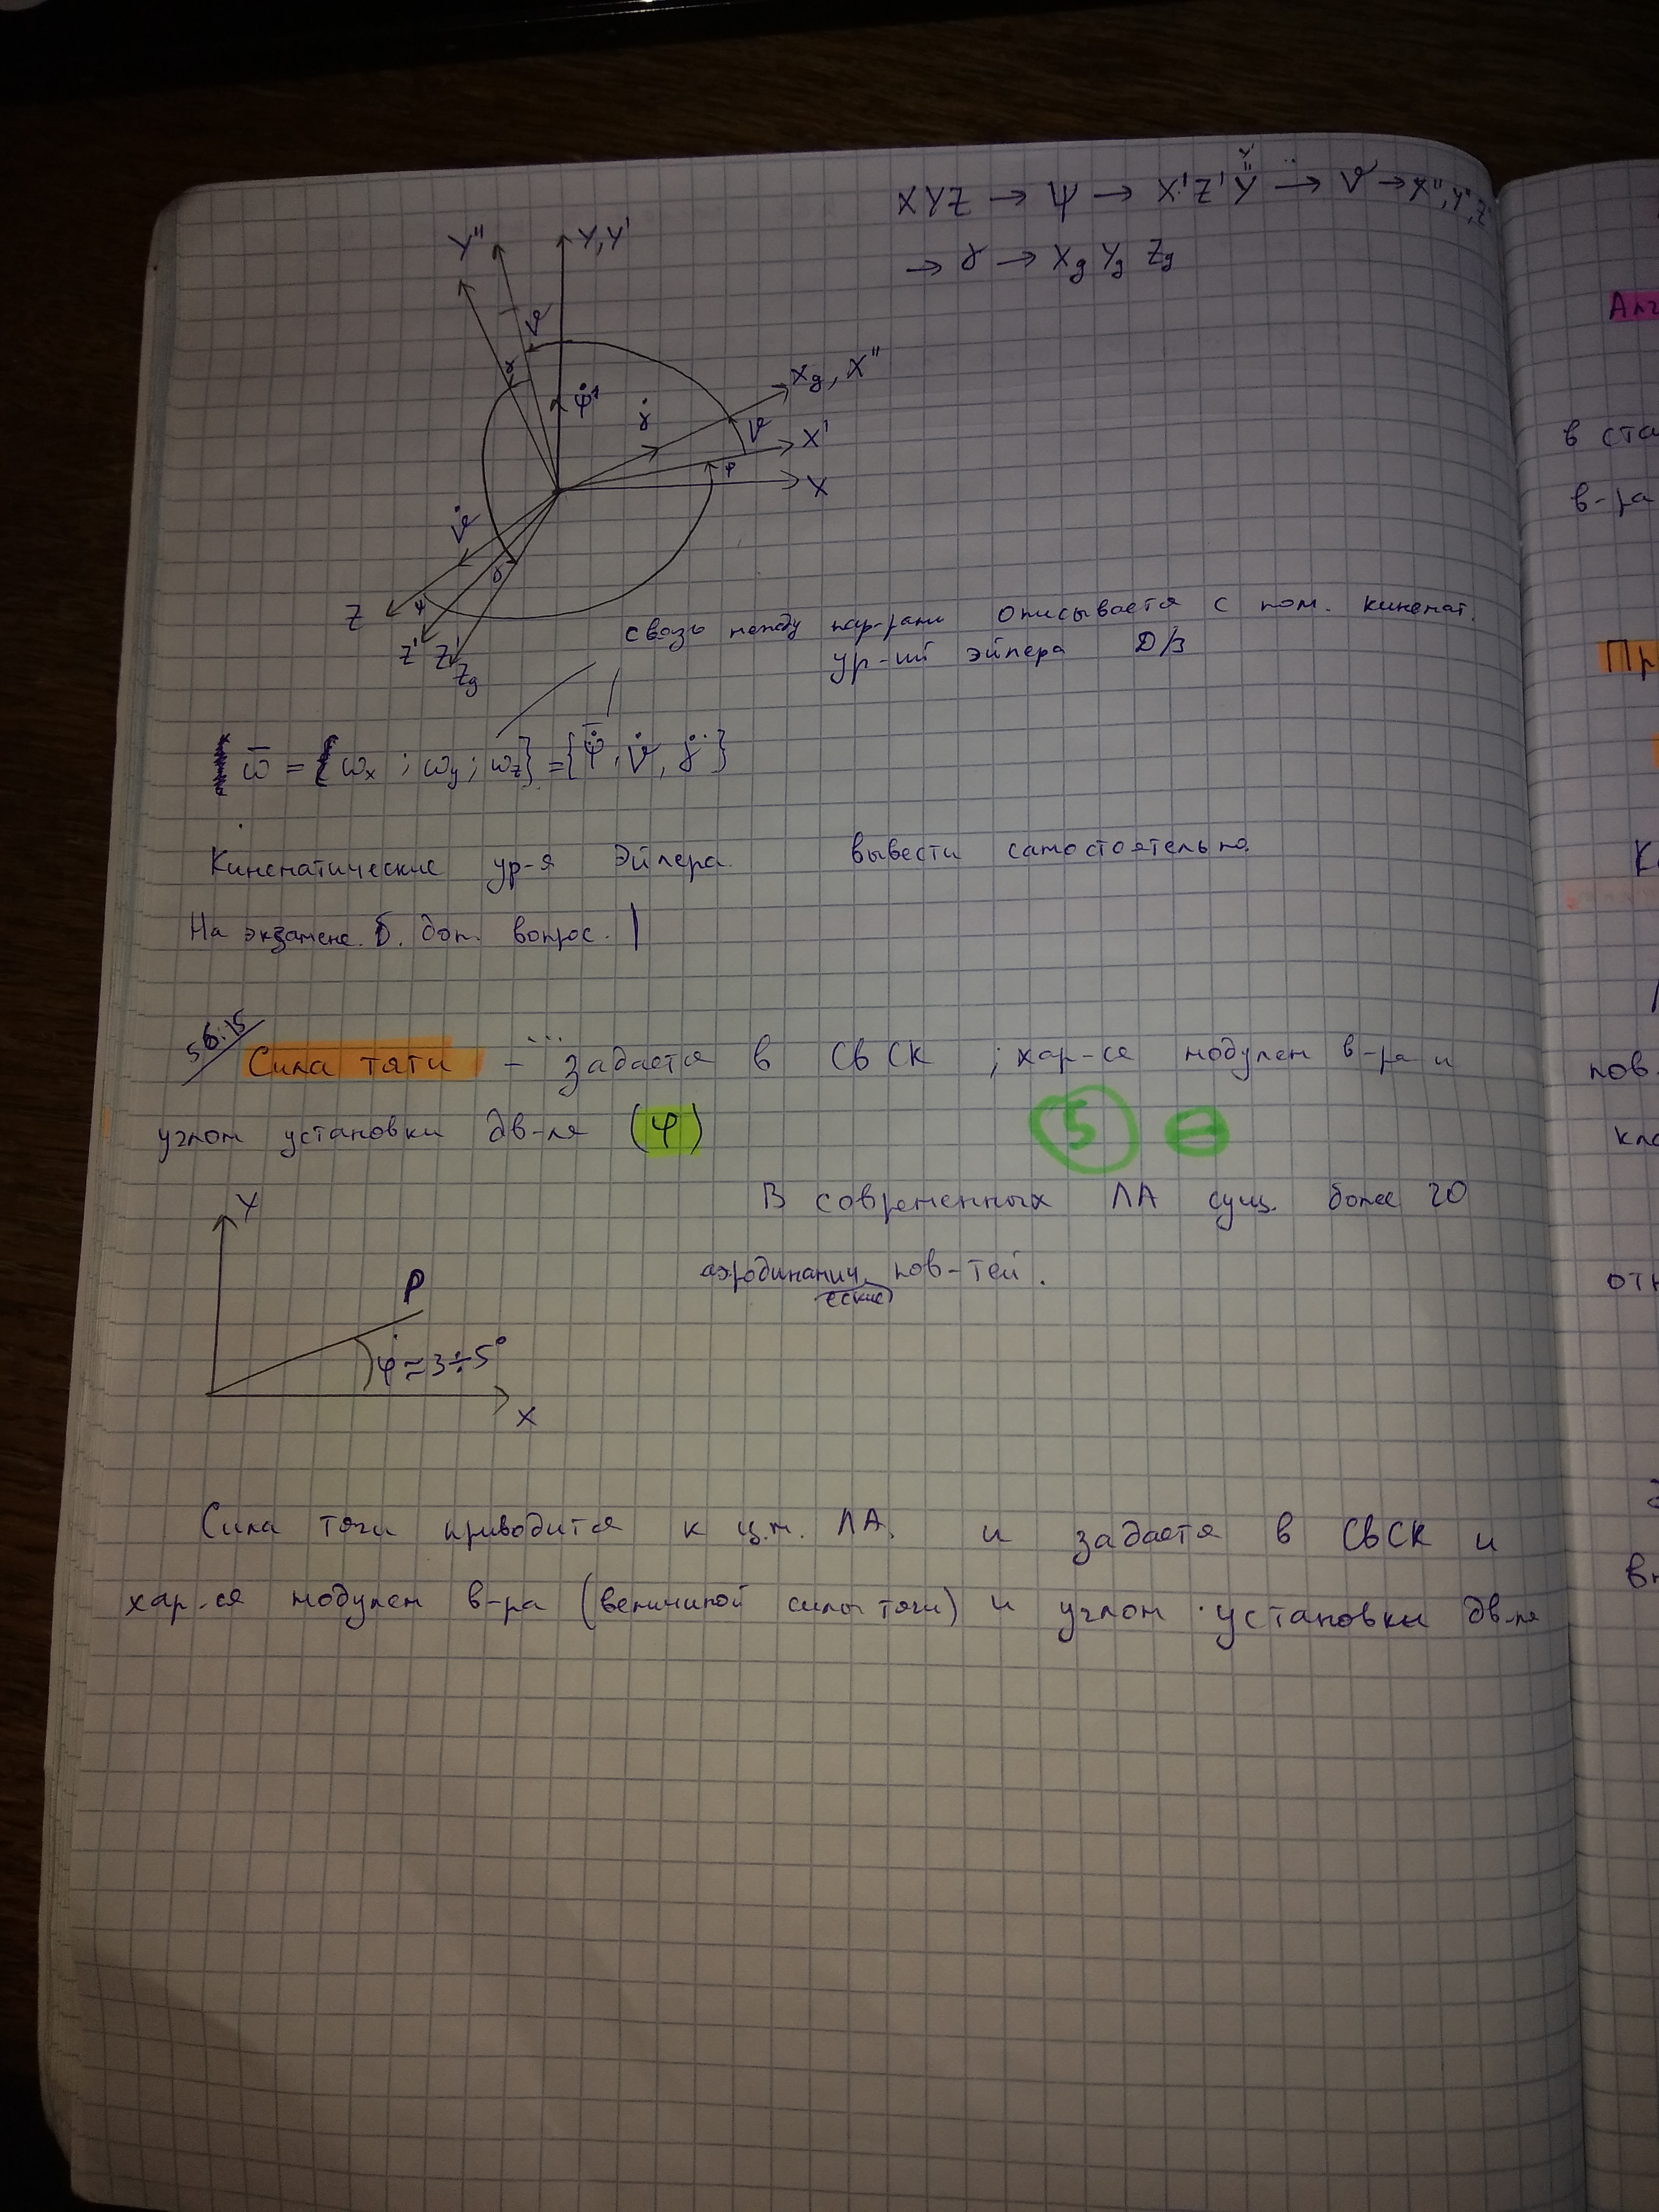 XYZ → ψ → X'Z'Y' → ϑ → X'',Y'',Z''
→ γ → Xg Yg Zg
Y''
Y,Y'
ϑ
γ
Xg, X''
ψ̇
γ̇
ϑ
X'
ψ
X
ϑ̇
γ
Z
ψ
Z' Z'
Zg
связь между пар-рами описывается с пом. кинемат.
ур-ий эйлера Д/З
ω̄ = {ωx ; ωy ; ωz} = {ψ̇, ϑ̇, γ̇}
Кинематические ур-я Эйлера. вывести самостоятельно.
На экзамене. б. доп. вопрос.
56:15
Сила тяги - ... задается в СвСК ; хар-ся модулем в-ра и
углом установки дв-ля (φ)
5
В современных ЛА сущ. более 20
аэродинамич. пов-тей.
еские
Y
P
φ ≈ 3÷5°
X
Сила тяги приводится к ц.м. ЛА. и задается в СвСК и
хар-ся модулем в-ра (величиной силы тяги) и углом установки дв-ля
в ста
в-ра
Пр
пов.